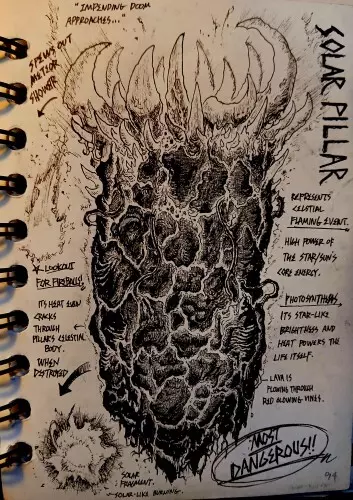 "IMPENDING DOOM
APPROACHES..."
SPEWS OUT
METEOR
SHOWER
SOLAR PILLAR
REPRESENTS
CELESTIAL
FLAMING EVENT.
HIGH POWER OF
THE STAR/SUN'S
CORE ENERGY.
★ LOOKOUT
FOR FIREBALLS!
PHOTOSYNTHESIS,
IT'S STAR-LIKE
BRIGHTNESS AND
HEAT POWERS THE
LIFE ITSELF.
IT'S HEAT EVEN
CRACKS
THROUGH
PILLARS CELESTIAL
BODY.
WHEN
DESTROYED
LAVA IS
FLOWING THROUGH
RED GLOWING VINES.
MOST
DANGEROUS!!
SOLAR
FRAGMENT.
SOLAR-LIKE BURNING.